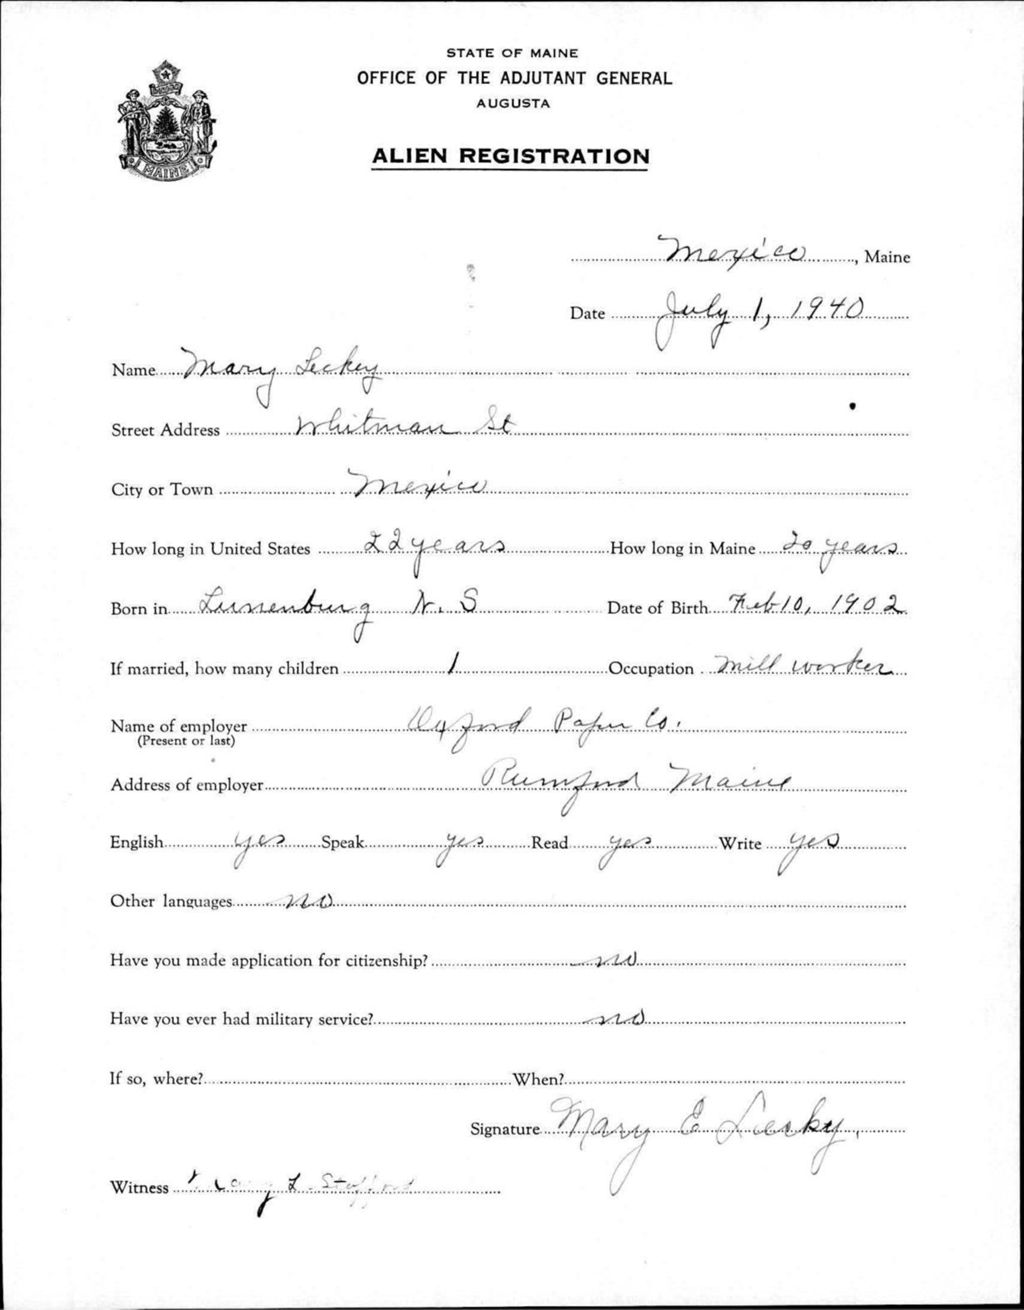 STATE OF MAINE
OFFICE OF THE ADJUTANT GENERAL
AUGUSTA
ALIEN REGISTRATION
MAINE
Mexico, Maine
Date July 1, 1940
Name Mary Leckey
Street Address Whitman St
City or Town Mexico
How long in United States 22 years How long in Maine 20 years
Born in Lunenburg N. S Date of Birth Feb 10, 1902
If married, how many children 1 Occupation Mill worker
Name of employer Oxford Paper Co.
(Present or last)
Address of employer Rumford Maine
English yes Speak yes Read yes Write yes
Other languages no
Have you made application for citizenship? no
Have you ever had military service? no
If so, where? When?
Signature Mary E Lecky.
Witness L. Stafford